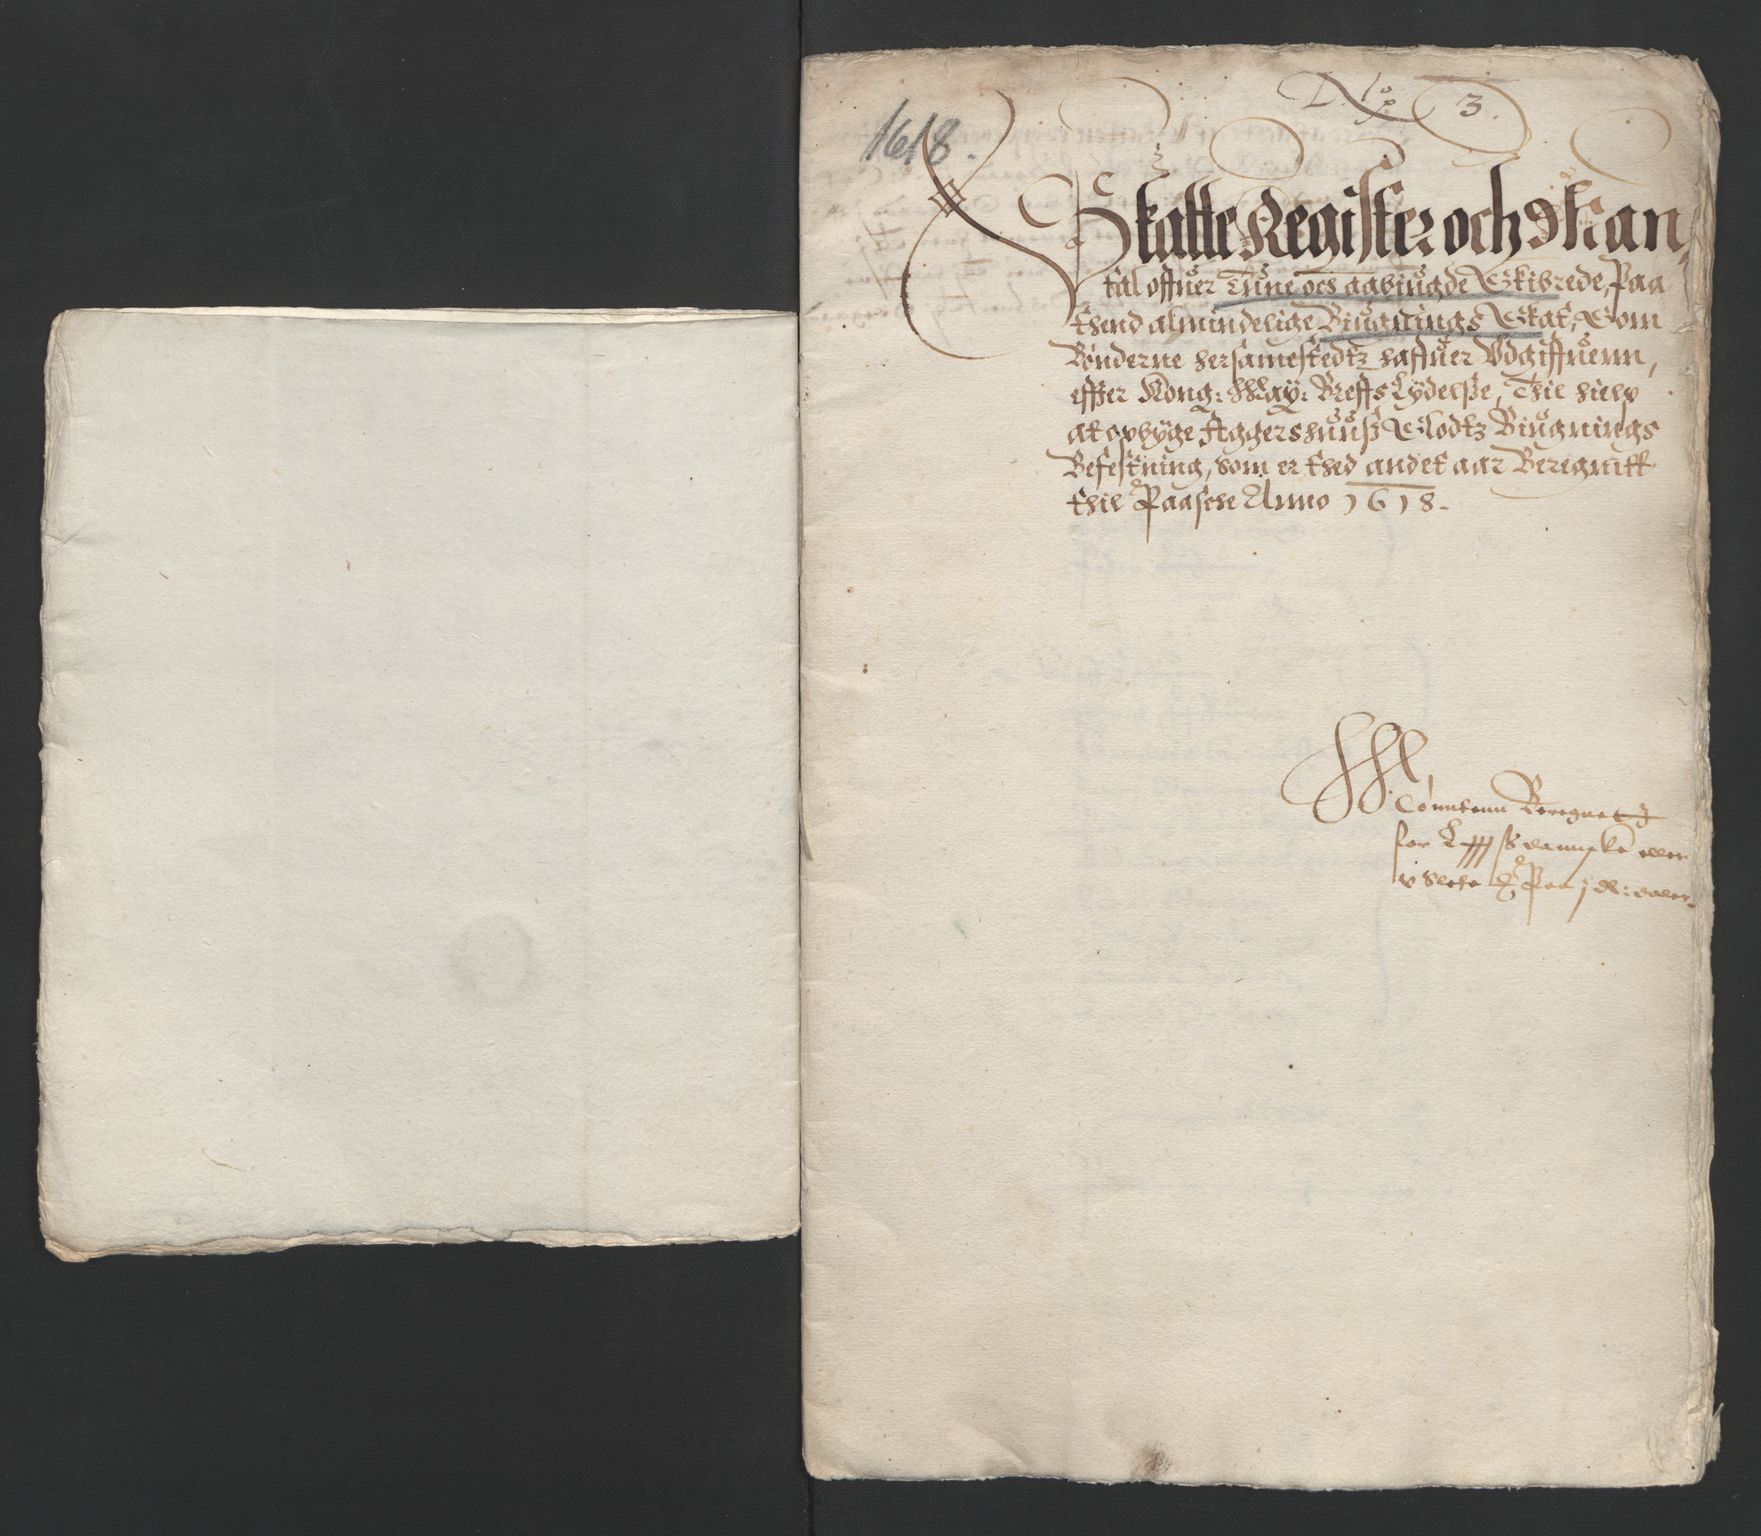 No 3.
1618.
Skatte Register och Man,
tal offuer Tune ocs aabiugde Skibrede, Paa
thend almindelige Biugnings Skat, Som
Bønderne hersamestedtz haffuer Vdgiffuenn,
effter Kong: May: Breffs Lydelsse, Thil hielp
at opbyge Aggershuuss Slodtz Biugnings
Befestning, som er thed andet aar Beregnitt
thil Paasche Anno 1618.
Beregnet
for
Paa